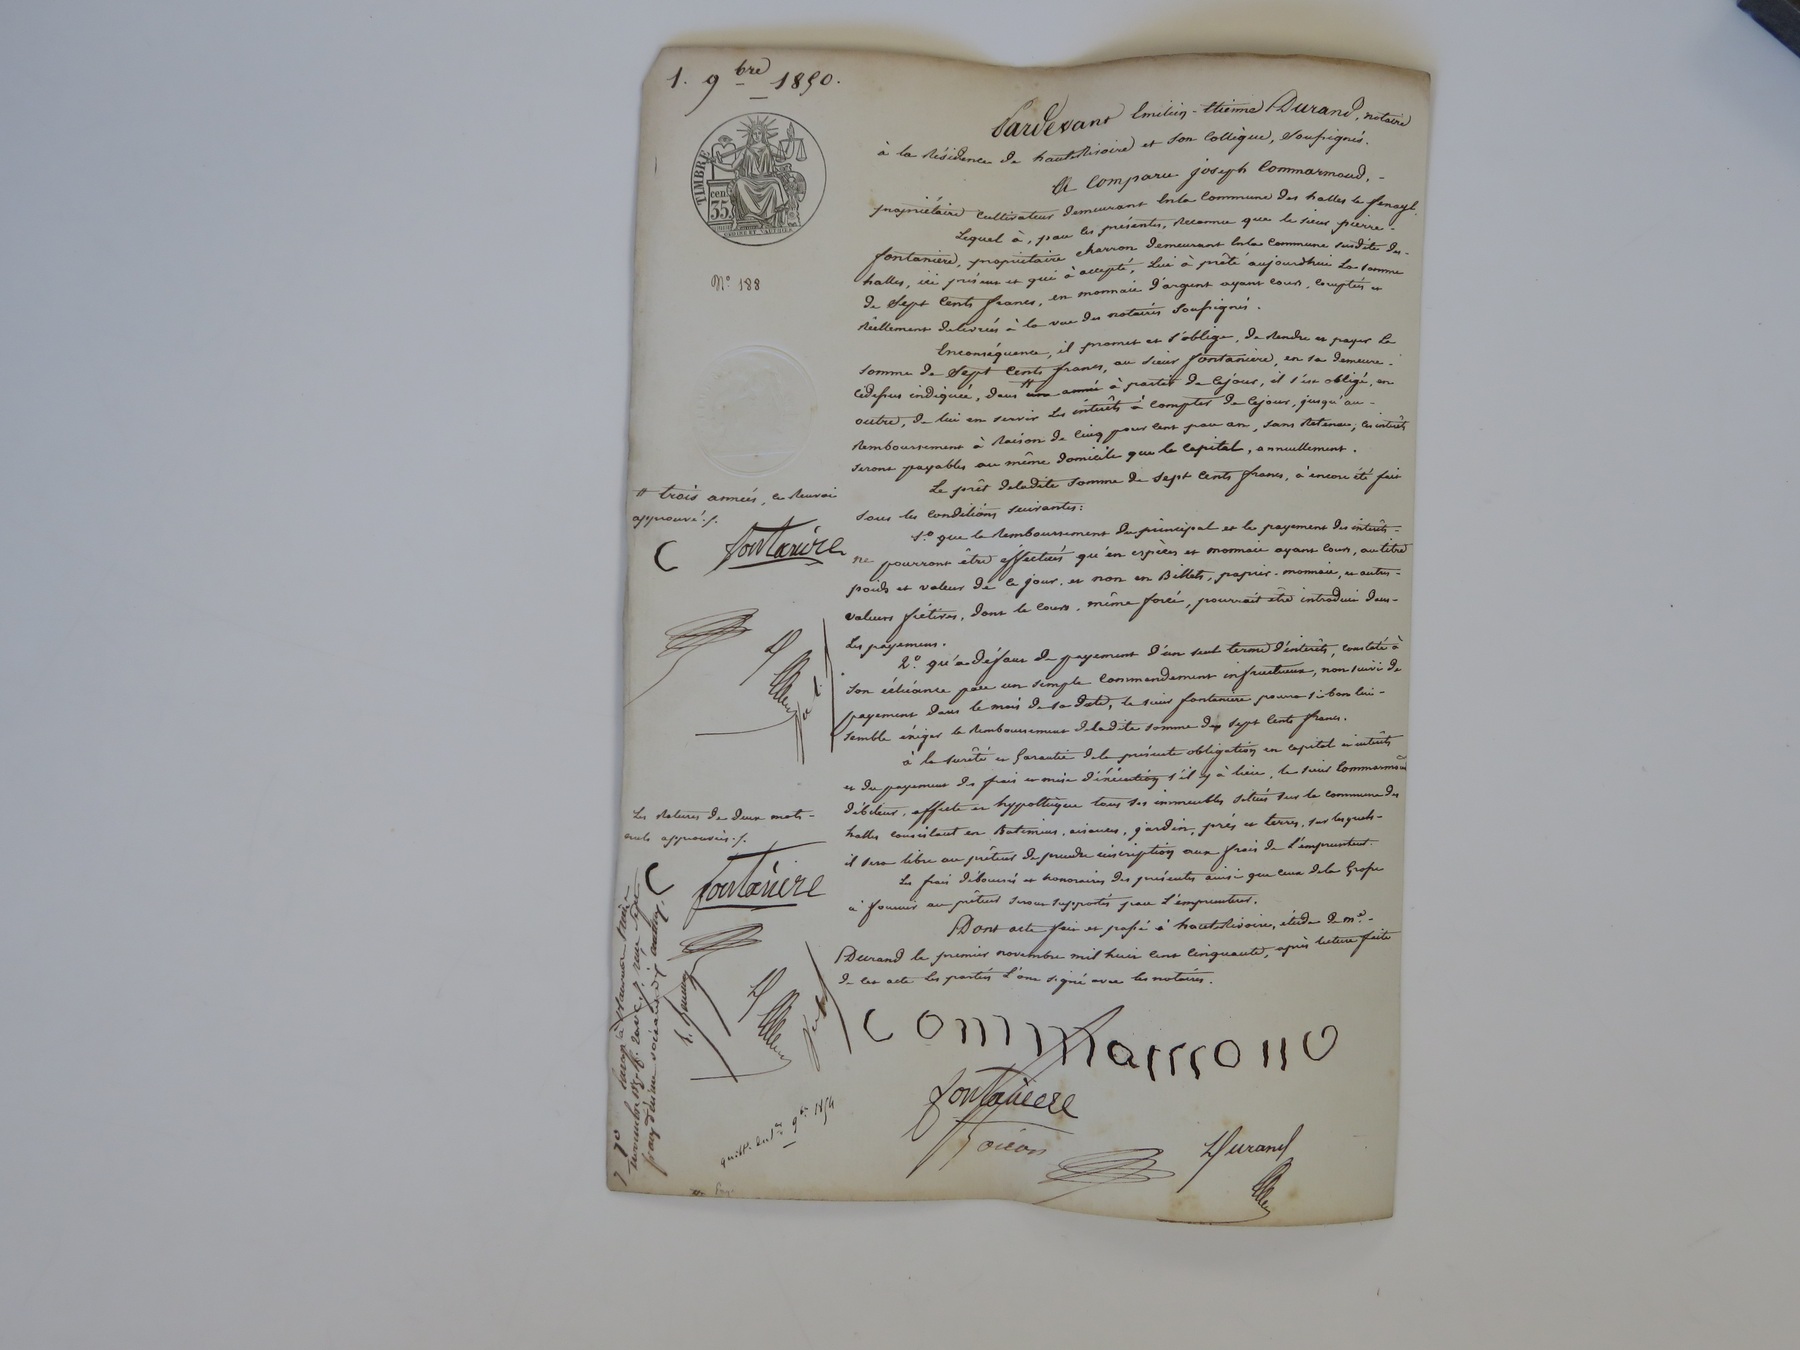 1. 9bre 1850.
TIMBRE
cen. 35
No. 188
Pardevant Emilien-Etienne Durand, notaire
à la Résidence de hauteRivoire et son Collègue, Soussignés.
A Comparu joseph Commarmond,
propriétaire Cultivateur demeurant En la Commune des halles le fenoyl.
Lequel à, par les présentes, Reconnu que le sieur pierre
fontanière, propriétaire charron demeurant En la Commune susdite des
halles, ici présent et qui à accepté, Lui à prêté aujourdhui La somme
de Sept Cents francs, en monnaie d'argent ayant cours, comptés et
Réellement délivrés à la vue des notaires Soussignés.
Enconséquence, il promet et s'oblige, de Rendre et payer La
somme de Sept Cents francs, au sieur fontanière, en sa demeure
cidessus indiquée, dans # une année à partir de Cejour, il s'est obligé, en
outre, de lui en servir Les intérêts à Compter de Cejour, jusqu'au
Remboursement à Raison de Cinq pour Cent par an, sans Retenue; les intérêts
seront payables au même domicile que le Capital, annuellement.
Le prêt deladite Somme de Sept Cents francs, à encore été fait
Sous les Conditions Suivantes:
1.o que le Remboursement du principal et le payement des intérêts
ne pourront être effectués qu'en espèces et monnaie ayant Cours, au titre
poids et valeur de ce jour. et non en Billets, papier-monnaie, et autres
valeurs fictives, dont le Cours, même forcé, pourrait être introduit dans
Les payemens.
2.o qu'a défaut de payement d'un seul terme d'intérêts, constaté à
Son échéance par un simple Commandement infructueux, non suivi de
payement dans le mois de sa date, le sieur fontanière pourra si bon lui
semble éxiger le Remboursement deladite somme de sept Cents francs.
à la sureté et Garantie dela présente obligation en capital et intérêts
et du payement des frais et mise d'éxécution s'il y à lieu, le sieur Commarmond
débiteur, affecte et hypothèque tous ses immeubles situés sur la commune des
halles consistant en Batimens, aisances, jardin, prés et terres, sur lesquels
il sera libre au prêteur de prendre inscription aux frais de L'emprunteur.
Les frais déboursés et honoraires des présentes ainsi que ceux dela Grosse
à fournir au prêteur seront supportés par L'emprunteur.
Dont acte fait et passé à hauteRivoire, étude de me
Durand le premier novembre mil huit cent Cinquante, après lecture faite
de cet acte les parties L'ont signé avec les notaires.
# trois années, le Renvoi
approuvé./.
C fontanière
Les Ratures de deux mots
nuls approuvés./.
C fontanière
Commarmond
fontanière
Durand
9bre 1854